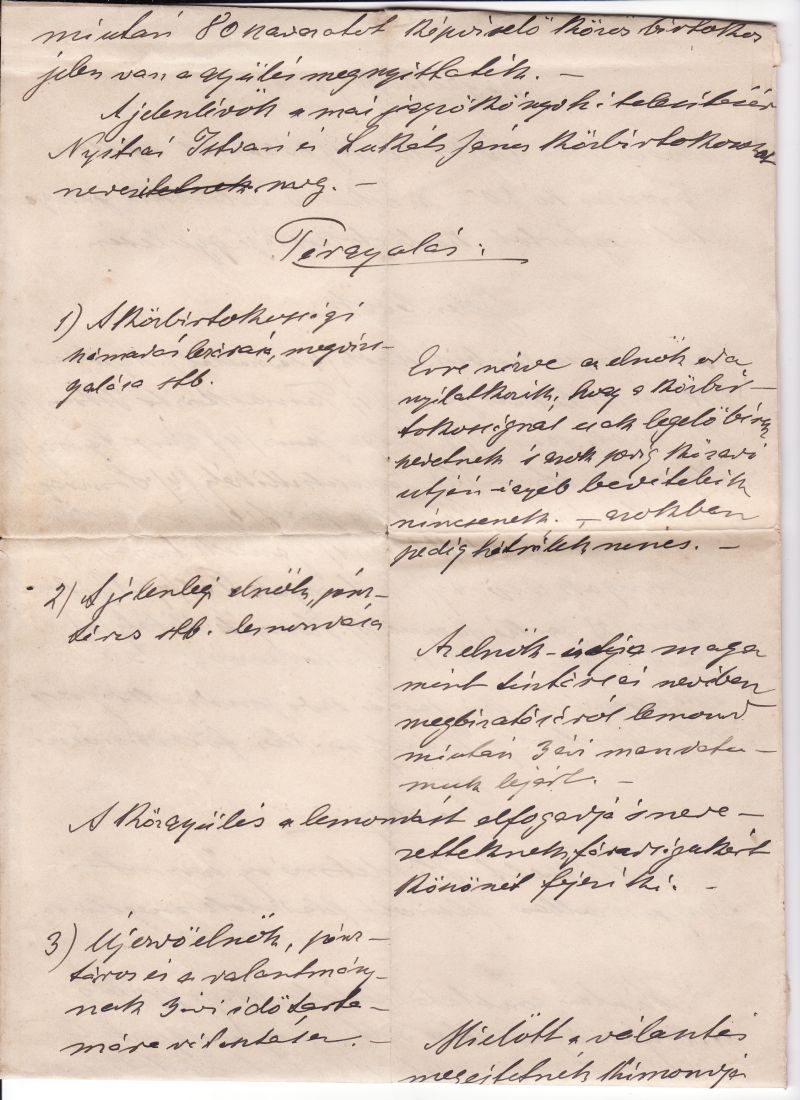 miután 80 szavazatot képviselő közös birtokos
jelen van a gyülés megnyittaték. –
A jelenlévők a mai jegyzőkönyv hitelesitésére
Nyitrai István és Lukáts János közbirtokosokat
nevezi meg. –
Tárgyalás:
1) A közbirtokossági
számadás lezárása, megvizs-
gálása stb.
Erre nézve az elnök oda
nyilatkozik, hogy a közbir-
tokosságnál csak legelő bérek
szedetnek s azok pedig
utján egyéb bevételeik
nincsenek. – azokban
pedig hátrálék nincs. –
2) A jelenlegi elnök, pénz-
táros stb. lemondása
Az elnök – ugy a maga
mint tisztársai nevében
megbizatásáról lemond
miután 3 évi mandatu-
muk lejárt. –
A Közgyülés a lemondást elfogadja s neve-
zetteknek fáradságukért
köszönét fejezi ki. –
3) Ujezvő elnök, pénz-
táros és a választmány-
nak 3 évi időtarta-
mára választása. –
Mielőtt a választás
megejtetnék kimondja